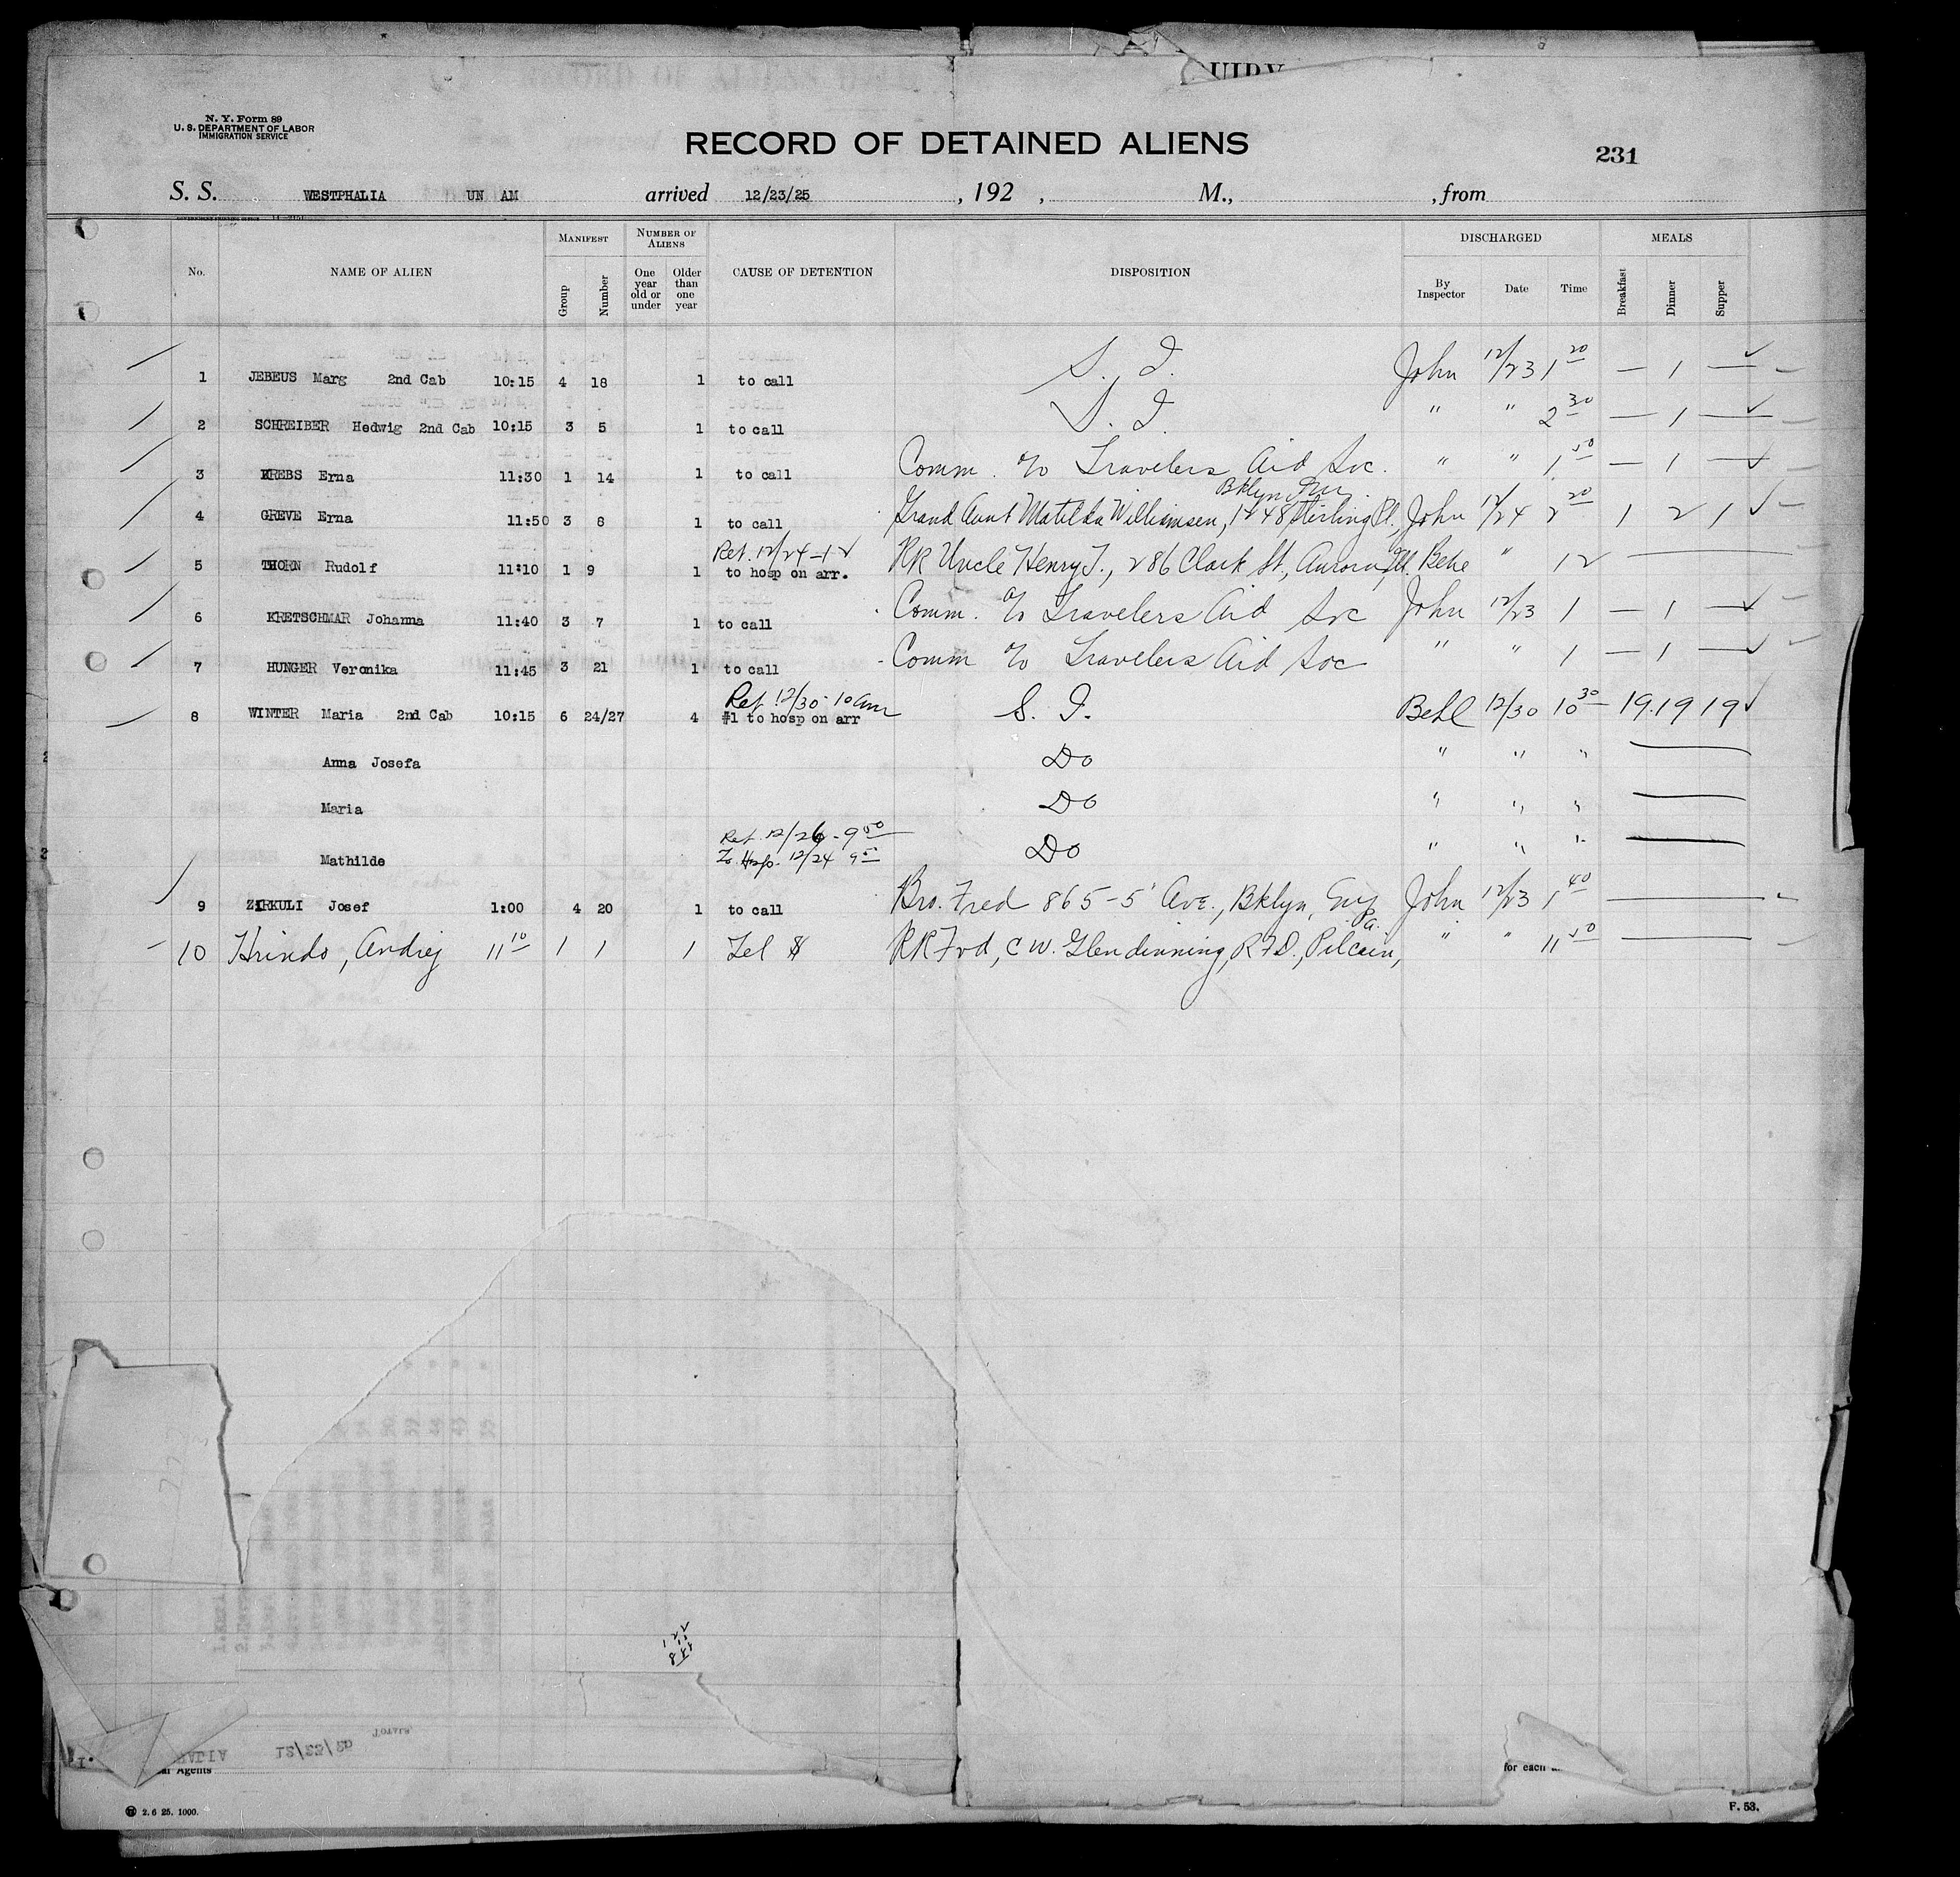 UIRY
N. Y. Form 89
U. S. DEPARTMENT OF LABOR
IMMIGRATION SERVICE
RECORD OF DETAINED ALIENS
231
S. S. WESTPHALIA UN AM arrived 12/23/25 , 192 , M., , from
No. NAME OF ALIEN MANIFEST Group Number NUMBER OF ALIENS One year old or under Older than one year CAUSE OF DETENTION DISPOSITION DISCHARGED By Inspector Date Time MEALS Breakfast Dinner Supper
1 JEBEUS Marg 2nd Cab 10:15 4 18 1 to call S. I. John 12/23 1 20 — 1 —
2 SCHREIBER Hedwig 2nd Cab 10:15 3 5 1 to call S. I. " " 2 30 — 1 —
3 KREBS Erna 11:30 1 14 1 to call Comm. % Travelers Aid Soc. " " 1 50 — 1 —
Bklyn
4 GREVE Erna 11:50 3 8 1 to call Grand Aunt Matilda Williamsen, 1248 Sterling Pl., John 12/24 2 20 1 2 1
Ret. 12/24-12
5 THORN Rudolf 11:10 1 9 1 to hosp on arr. RR Uncle Henry T., 286 Clark St., Aurora, Ill. Behe " 12
6 KRETSCHMAR Johanna 11:40 3 7 1 to call Comm. % Travelers Aid Soc John 12/23 1 — 1 —
7 HUNGER Veronika 11:45 3 21 1 to call Comm % Travelers Aid Soc " " 1 — 1 —
Ret 12/30 - 10 am
8 WINTER Maria 2nd Cab 10:15 6 24/27 4 #1 to hosp on arr S. I. Behl 12/30 10 30 19 19 19
Anna Josefa Do " " "
Maria Do " " "
Ret. 12/26 - 9 50
Mathilde To Hosp. 12/24 9 50 Do " " "
9 ZIRKULI Josef 1:00 4 20 1 to call Bro. Fred 865-5' Ave., Bklyn, John 12/23 1 40
Pa.
10 Hrinds, Andrej 11 10 1 1 1 Tel $ RR Frd, C W. Glendinning, R.F.D., Pilcain, " " 11 50
122
11
844
TOTALS
12/23/25
al Agents
for each
2. 6 25. 1000.
F. 53.